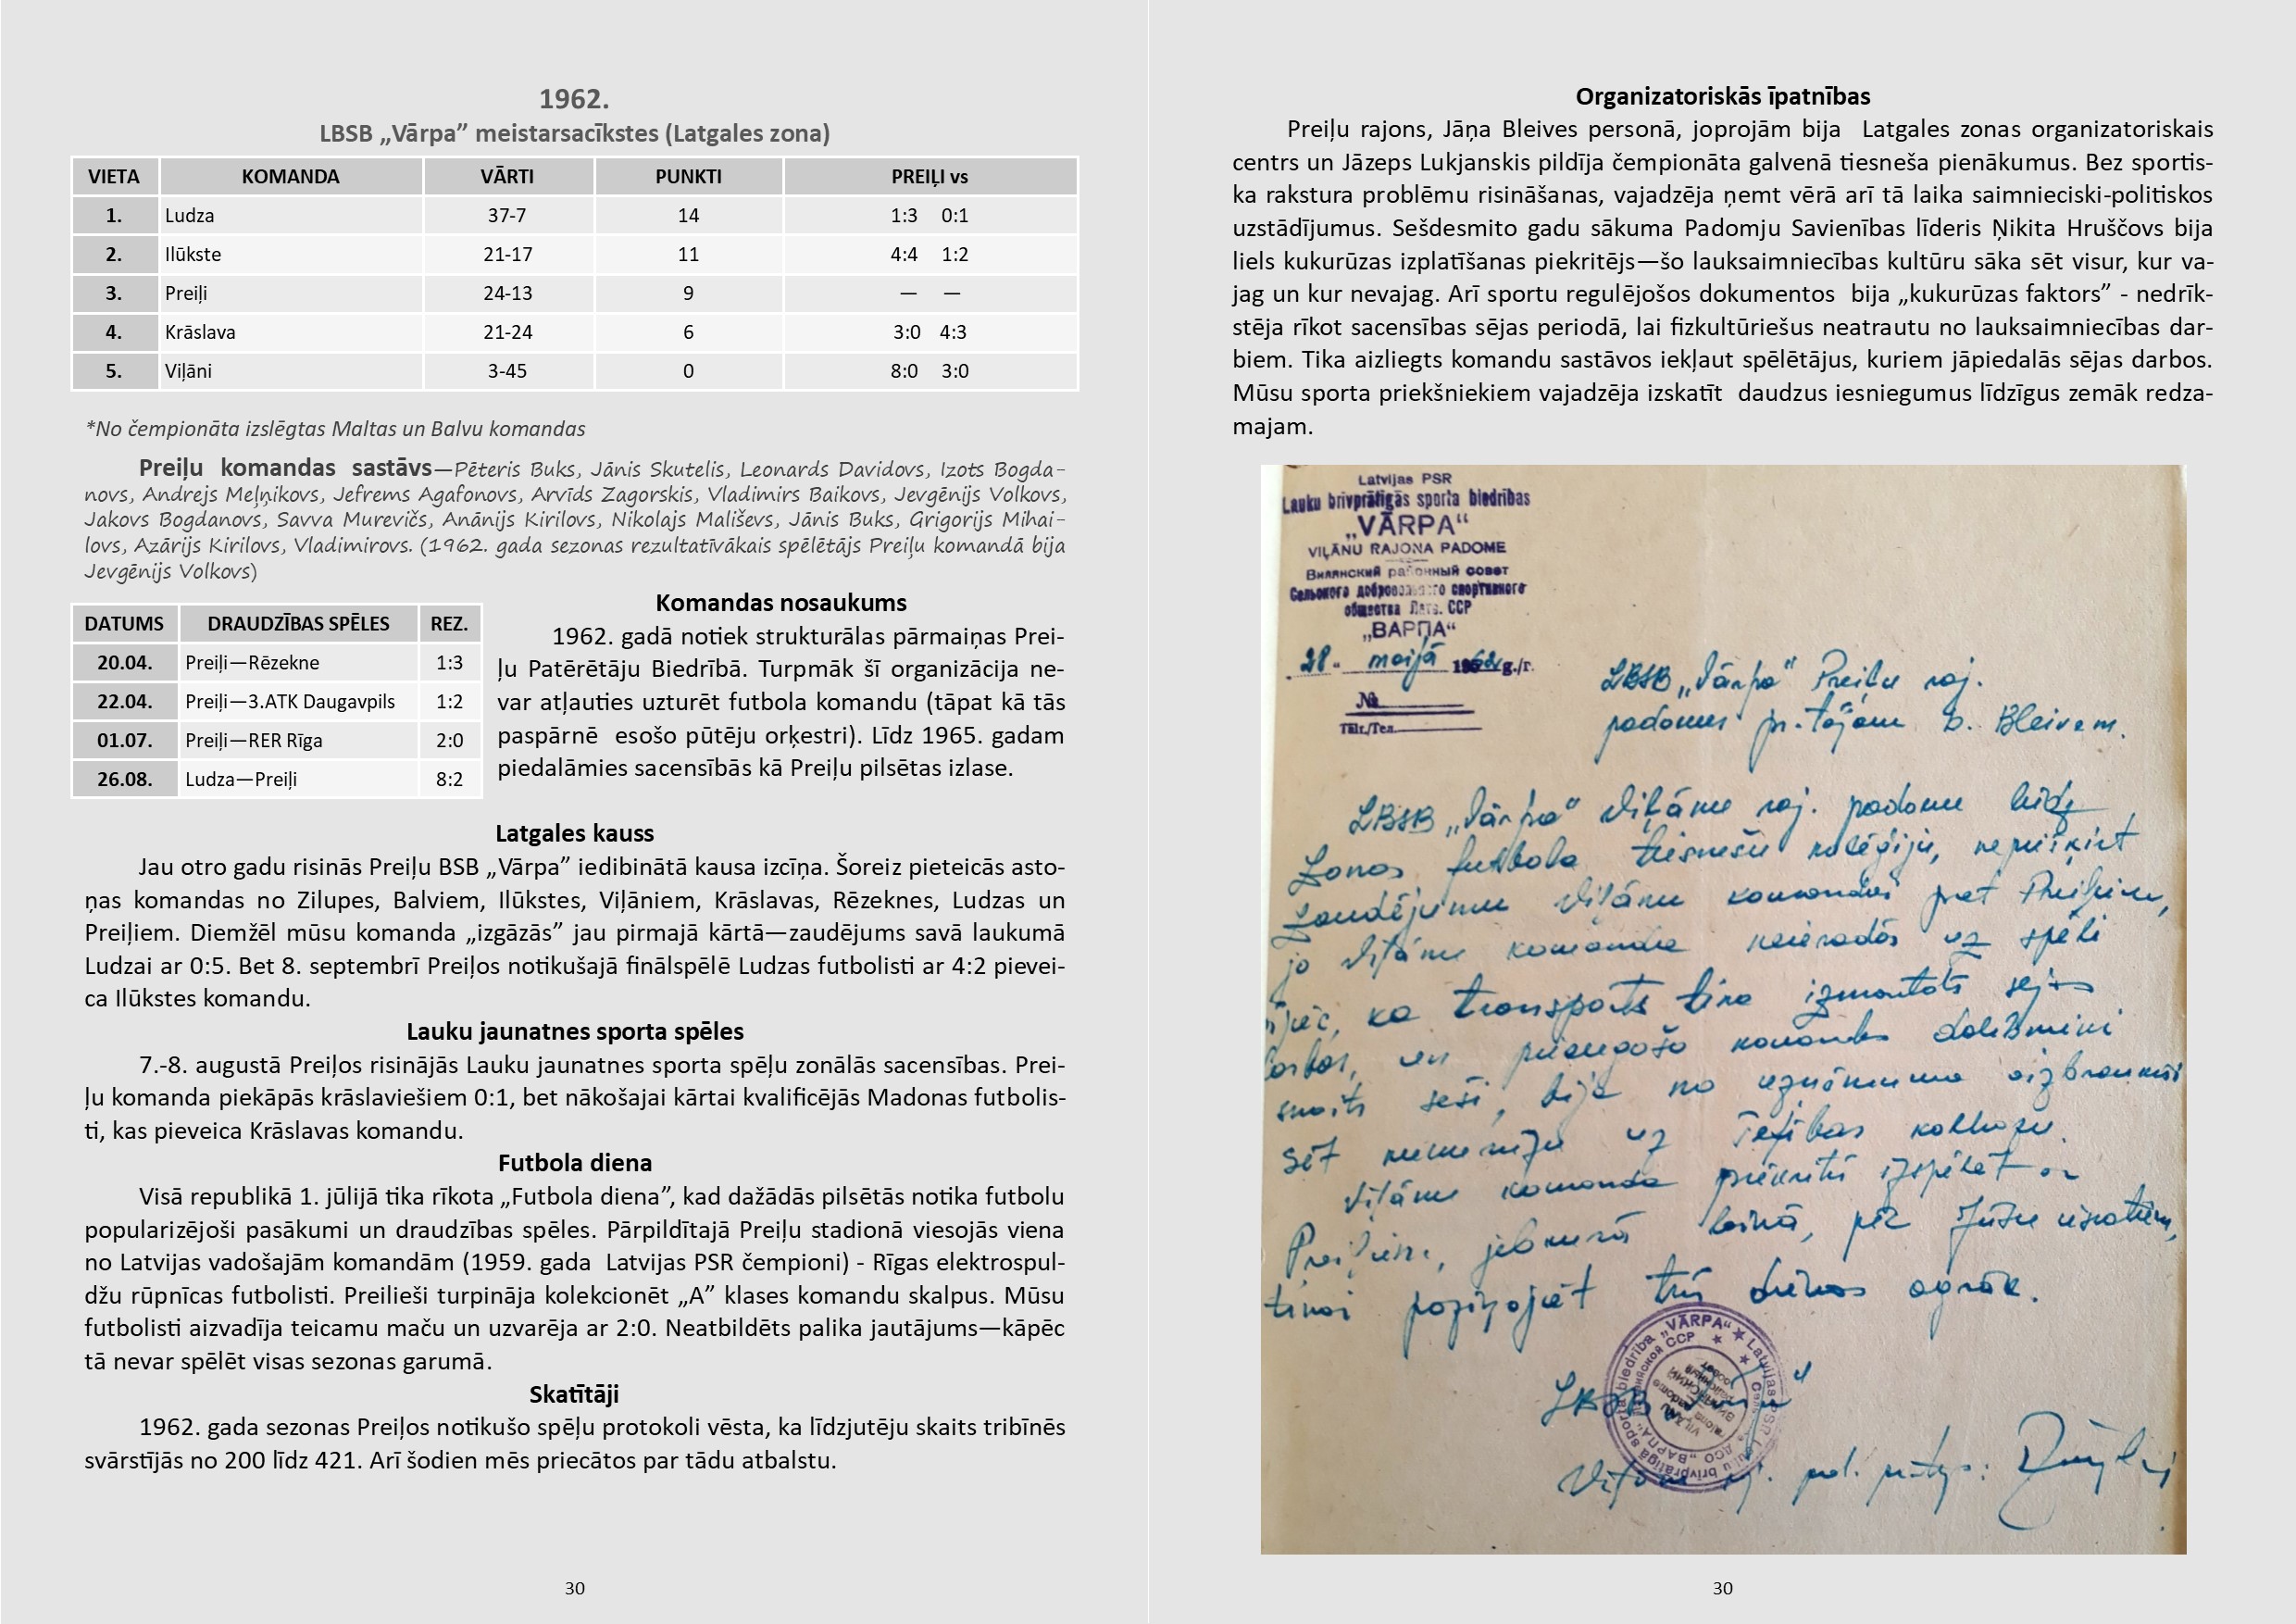 1962.
LBSB „Vārpa” meistarsacīkstes (Latgales zona)
VIETA KOMANDA VĀRTI PUNKTI PREIĻI vs
1. Ludza 37-7 14 1:3 0:1
2. Ilūkste 21-17 11 4:4 1:2
3. Preiļi 24-13 9 — —
4. Krāslava 21-24 6 3:0 4:3
5. Viļāni 3-45 0 8:0 3:0
*No čempionāta izslēgtas Maltas un Balvu komandas
Preiļu komandas sastāvs—Pēteris Buks, Jānis Skutelis, Leonards Davidovs, Izots Bogda-
novs, Andrejs Meļņikovs, Jefrems Agafonovs, Arvīds Zagorskis, Vladimirs Baikovs, Jevgēnijs Volkovs,
Jakovs Bogdanovs, Savva Murevičs, Anānijs Kirilovs, Nikolajs Mališevs, Jānis Buks, Grigorijs Mihai-
lovs, Azārijs Kirilovs, Vladimirovs. (1962. gada sezonas rezultatīvākais spēlētājs Preiļu komandā bija
Jevgēnijs Volkovs)
DATUMS DRAUDZĪBAS SPĒLES REZ.
20.04. Preiļi—Rēzekne 1:3
22.04. Preiļi—3.ATK Daugavpils 1:2
01.07. Preiļi—RER Rīga 2:0
26.08. Ludza—Preiļi 8:2
Komandas nosaukums
1962. gadā notiek strukturālas pārmaiņas Prei-
ļu Patērētāju Biedrībā. Turpmāk šī organizācija ne-
var atļauties uzturēt futbola komandu (tāpat kā tās
paspārnē esošo pūtēju orķestri). Līdz 1965. gadam
piedalāmies sacensībās kā Preiļu pilsētas izlase.
Latgales kauss
Jau otro gadu risinās Preiļu BSB „Vārpa” iedibinātā kausa izcīņa. Šoreiz pieteicās asto-
ņas komandas no Zilupes, Balviem, Ilūkstes, Viļāniem, Krāslavas, Rēzeknes, Ludzas un
Preiļiem. Diemžēl mūsu komanda „izgāzās” jau pirmajā kārtā—zaudējums savā laukumā
Ludzai ar 0:5. Bet 8. septembrī Preiļos notikušajā finālspēlē Ludzas futbolisti ar 4:2 pievei-
ca Ilūkstes komandu.
Lauku jaunatnes sporta spēles
7.-8. augustā Preiļos risinājās Lauku jaunatnes sporta spēļu zonālās sacensības. Prei-
ļu komanda piekāpās krāslaviešiem 0:1, bet nākošajai kārtai kvalificējās Madonas futbolis-
ti, kas pieveica Krāslavas komandu.
Futbola diena
Visā republikā 1. jūlijā tika rīkota „Futbola diena”, kad dažādās pilsētās notika futbolu
popularizējoši pasākumi un draudzības spēles. Pārpildītajā Preiļu stadionā viesojās viena
no Latvijas vadošajām komandām (1959. gada Latvijas PSR čempioni) - Rīgas elektrospul-
džu rūpnīcas futbolisti. Preilieši turpināja kolekcionēt „A” klases komandu skalpus. Mūsu
futbolisti aizvadīja teicamu maču un uzvarēja ar 2:0. Neatbildēts palika jautājums—kāpēc
tā nevar spēlēt visas sezonas garumā.
Skatītāji
1962. gada sezonas Preiļos notikušo spēļu protokoli vēsta, ka līdzjutēju skaits tribīnēs
svārstījās no 200 līdz 421. Arī šodien mēs priecātos par tādu atbalstu.
30
Organizatoriskās īpatnības
Preiļu rajons, Jāņa Bleives personā, joprojām bija Latgales zonas organizatoriskais
centrs un Jāzeps Lukjanskis pildīja čempionāta galvenā tiesneša pienākumus. Bez sportis-
ka rakstura problēmu risināšanas, vajadzēja ņemt vērā arī tā laika saimnieciski-politiskos
uzstādījumus. Sešdesmito gadu sākuma Padomju Savienības līderis Ņikita Hruščovs bija
liels kukurūzas izplatīšanas piekritējs—šo lauksaimniecības kultūru sāka sēt visur, kur va-
jag un kur nevajag. Arī sportu regulējošos dokumentos bija „kukurūzas faktors” - nedrīk-
stēja rīkot sacensības sējas periodā, lai fizkultūriešus neatrautu no lauksaimniecības dar-
biem. Tika aizliegts komandu sastāvos iekļaut spēlētājus, kuriem jāpiedalās sējas darbos.
Mūsu sporta priekšniekiem vajadzēja izskatīt daudzus iesniegumus līdzīgus zemāk redza-
majam.
Latvijas PSR
Lauku brīvprātīgās sporta biedrības
„VĀRPA“
VIĻĀNU RAJONA PADOME
Вилянский районный совет
Сельского добровольного спортивного
общества Латв. ССР
„ВАРПА“
28 „ maijā 1962 g./г.
№
Tālr./Тел.
LBSB „Vārpa” Preiļu raj.
padomes pr-tājam b. Bleivem.
LBSB „Vārpa” Viļānu raj. padome lūdz
Zonas futbola tiesnešu kolēģiju, nepiešķirt
zaudējumu Viļānu komandai pret Preiļiem,
jo Viļānu komanda neieradās uz spēli
tāpēc, ka transports tika izmantots sējas
darbos, un pieaugošo komandas dalībnieki
skaits seši, bija no uzņēmuma aizbraukuši
sēt kukurūzu uz kolhozu.
Viļānu komanda piekritīs izspēlēt ar
Preiļiem, jebkurā laikā, pēc Jūsu ieskatiem,
tikai paziņojiet trīs dienas agrāk.
LBSB „Vārpa”
Viļānu raj. pad. pr-tājs:
30